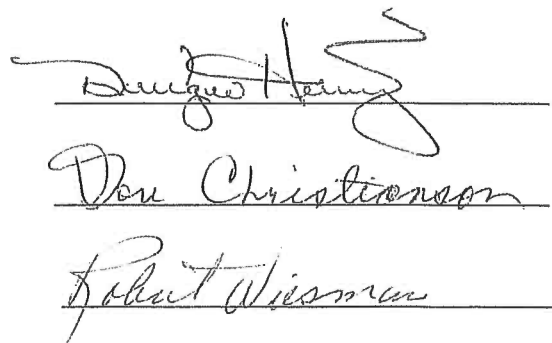 Henry
Don Christianson
Robert Wiesman